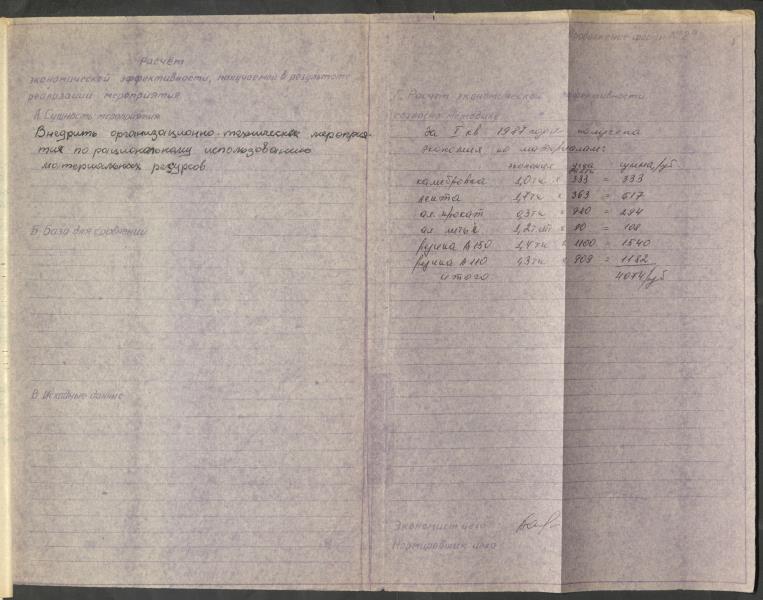 Расчёт
экономической эффективности, получаемой в результате
реализации мероприятия
А. Сущность мероприятия
Внедрить организационно-технические меропри-
тия по рациональному использованию
материальных ресурсов
Б. База для сравнения
В. Исходные данные
Продолжение формы №2
Г. Расчет экономической эффективности
согласно методике
За I кв 1987 года получена
экономия по материалам:
экономия цена сумма/руб
калибровка 1,0тн х 333 = 333
лента 1,7тн х 363 = 617
ал. прокат 0,3тн х 980 = 294
ал. литье х 90 = 108
ручка А 150 1,4тн х 1100 = 1540
ручка А 110 1,3тн х 909 = 1182
итого 4074/руб
Экономист цеха
Нормировщик цеха